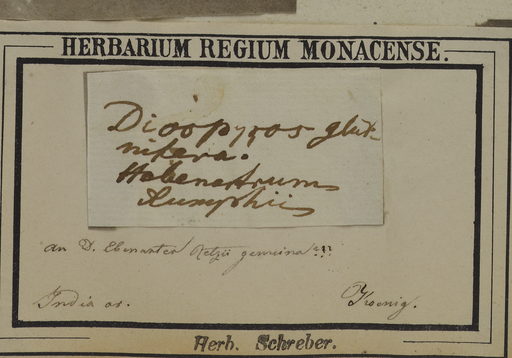 HERBARIUM REGIUM MONACENSE.
Diospyros glut-
nifera.
Hebenastrum
Rumphii
an D. Ebenaster Retzii genuina?!!
India or.
Koenig.
Herb. Schreber.